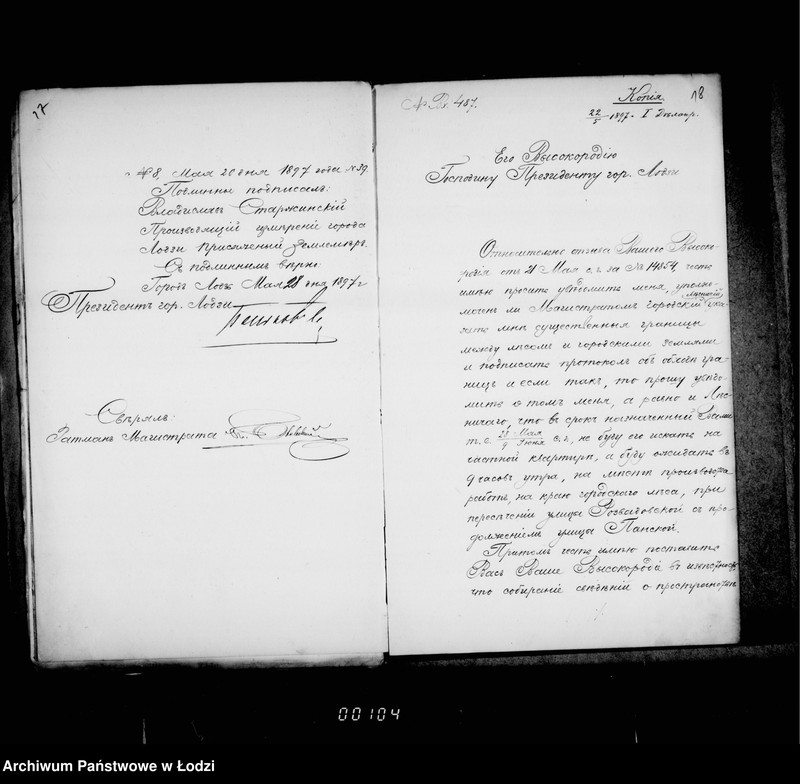 17
№ 8, Мая 20 дня 1897 года № 39.
Подлинный подписалъ:
Владиславъ Старжинскій
Производящій измѣреніе города
Лодзи присяжный Землемѣръ.
Съ подлиннымъ вѣрно:
Городъ Лодзь Мая 28 дня 1897 г
Президентъ гор. Лодзи
Свѣрялъ:
Ратманъ Магистрата
18
№ Вх. 487.
Копія
22/5 1897. I
Его Высокородію
Господину Президенту гор. Лодзи
Относительно отзыва Вашего Высоко-
родія отъ 21 Мая с. г. за № 14854, честь
имѣю просить увѣдомить меня, уполно-
моченъ ли Магистратомъ городскій лѣсничій
мнѣ существенныя границы
между лѣсомъ и городскими землями
и подписать протоколъ объ обходѣ гра-
ницъ и если такъ, то прошу увѣдо-
мить о томъ меня, а равно и Лѣс-
ничаго, что въ срокъ назначенный Вами
т. е. 28 Мая/9 Іюня с. г., не буду его искать на
частной квартирѣ, а буду ожидать въ
9 часовъ утра, на мѣстѣ производства
работъ, на краю городскаго лѣса, при
пересѣченіи улицы Розвадовской съ про-
долженіемъ улицы Панской.
Притомъ честь имѣю поставить
Васъ Ваше Высокородіе въ извѣстность
что собираніе свѣдѣній о
00104
Archiwum Państwowe w Łodzi